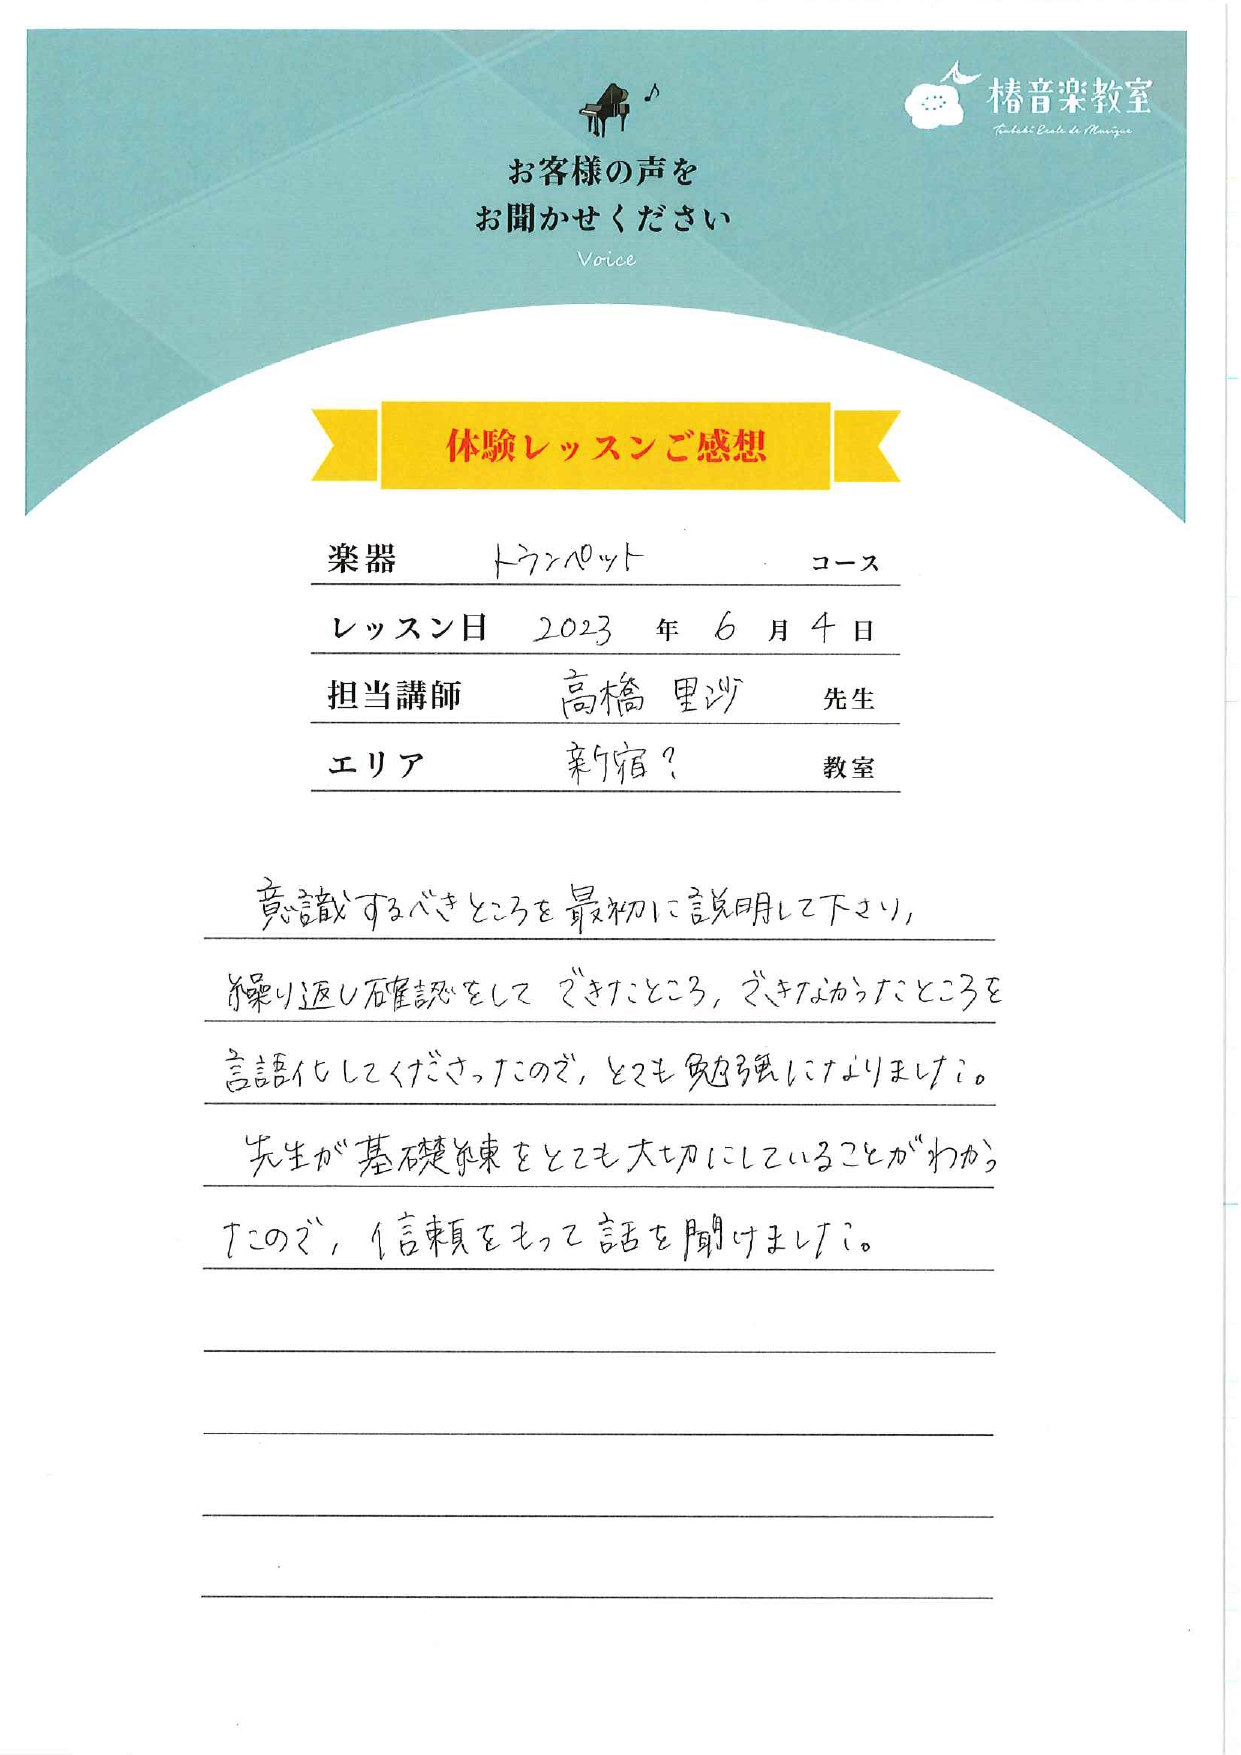 椿音楽教室
Tsubaki Ecole de Musique
お客様の声を
お聞かせください
Voice
体験レッスンご感想
楽器 トランペット コース
レッスン日 2023 年 6 月 4 日
担当講師 高橋 里沙 先生
エリア 新宿? 教室
意識するべきところを最初に説明して下さり,
繰り返し確認をして できたところ, できなかったところを
言語化してくださったので, とても勉強になりました。
先生が基礎練をとても大切にしていることがわかっ
たので, 信頼をもって話を聞けました。